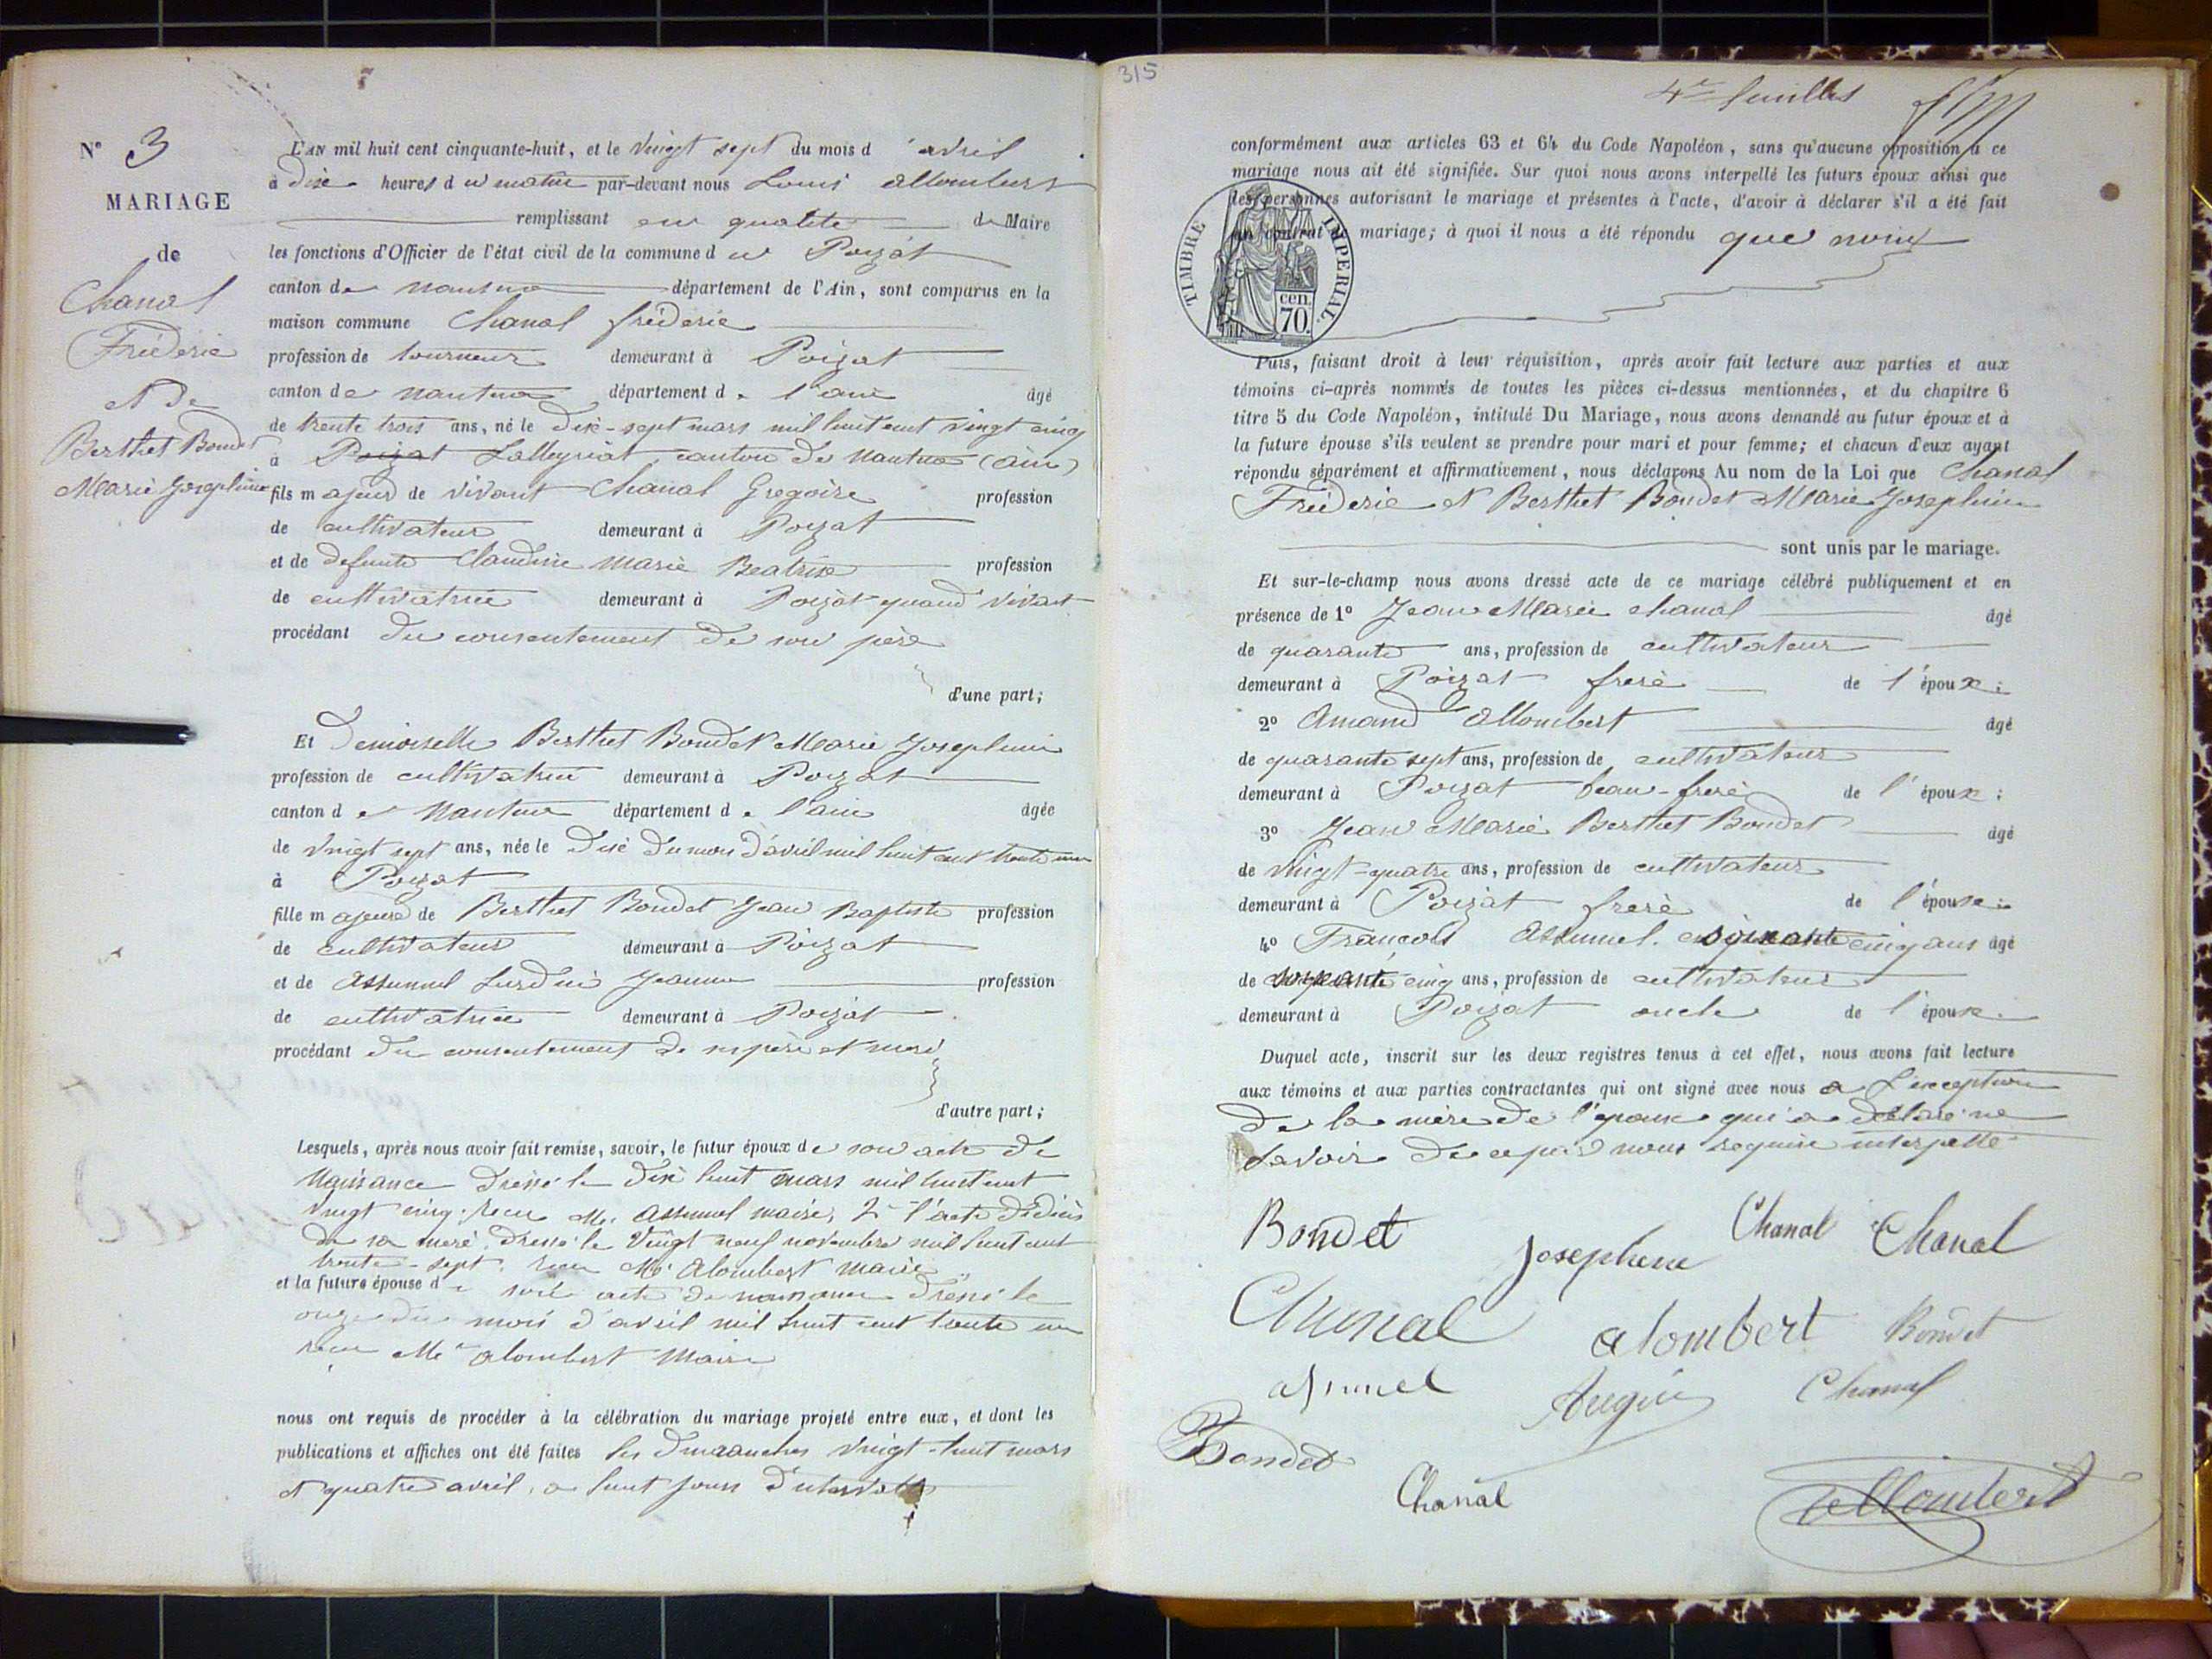 N° 3
MARIAGE
de
Chanal
Fréderic
et de
Berthet Bondet
Marie Josephine
L'AN mil huit cent cinquante-huit, et le vingt sept du mois d'avril
à dix heures du matin par-devant nous Louis Allombert
remplissant en qualité de Maire
les fonctions d'Officier de l'état civil de la commune du Poizat
canton de nantua département de l'Ain, sont comparus en la
maison commune Chanal fréderic
profession de tourneur demeurant à Poizat
canton de nantua département de l'ain âgé
de trente trois ans, né le dix-sept mars mil huit cent vingt cinq
à Poizat Lalleyriat, canton de Nantua (ain)
fils majeur de vivant Chanal Gregoire profession
de cultivateur demeurant à Poizat
et de defunte Claudine Marie Beatrix profession
de cultivatrice demeurant à Poizat quand vivait
procédant du consentement de son père
d'une part;
Et Demoiselle Berthet Bondet Marie Josephine
profession de cultivatrice demeurant à Poizat
canton de Nantua département de l'ain âgée
de vingt sept ans, née le dix du mois d'avril mil huit cent trente un
à Poizat
fille majeure de Berthet Bondet Jean Baptiste profession
de cultivateur demeurant à Poizat
et de Assumel Jeanne profession
de cultivatrice demeurant à Poizat
procédant du consentement de ses père et mère
d'autre part;
Lesquels, après nous avoir fait remise, savoir, le futur époux de son acte de
Naissance dressé le dix huit mars mil huit cent
vingt cinq. recu Mr. Assumel maire, 2° l'acte de décès
de sa mere, dressé le vingt neuf novembre mil huit cent
trente-sept, recu Mr Alombert maire
et la future épouse de son acte de naissance dressé le
onze du mois d'avril mil huit cent trente un
recu Mr alombert Maire
nous ont requis de procéder à la célébration du mariage projeté entre eux, et dont les
publications et affiches ont été faites les dimanches vingt-huit mars
et quatre avril, a huit jours d'intervalle
315
4e feuillet
conformément aux articles 63 et 64 du Code Napoléon, sans qu'aucune opposition à ce
mariage nous ait été signifiée. Sur quoi nous avons interpellé les futurs époux ainsi que
les personnes autorisant le mariage et présentes à l'acte, d'avoir à déclarer s'il a été fait
un contrat de mariage; à quoi il nous a été répondu que non
TIMBRE IMPERIAL
cen.
70.
Puis, faisant droit à leur réquisition, après avoir fait lecture aux parties et aux
témoins ci-après nommés de toutes les pièces ci-dessus mentionnées, et du chapitre 6
titre 5 du Code Napoléon, intitulé Du Mariage, nous avons demandé au futur époux et à
la future épouse s'ils veulent se prendre pour mari et pour femme; et chacun d'eux ayant
répondu séparément et affirmativement, nous déclarons Au nom de la Loi que Chanal
Fréderic et Berthet Bondet Marie Josephine
sont unis par le mariage.
Et sur-le-champ nous avons dressé acte de ce mariage célébré publiquement et en
présence de 1° Jean Marie Chanal âgé
de quarante ans, profession de cultivateur
demeurant à Poizat frere de l'époux;
2° Amand Allombert âgé
de quarante sept ans, profession de cultivateur
demeurant à Poizat beau-frere de l'époux;
3° Jean Marie Berthet Bondet âgé
de vingt-quatre ans, profession de cultivateur
demeurant à Poizat frere de l'épouse;
4° Francois Assumel. soixante cinq ans âgé
de soixante cinq ans, profession de cultivateur
demeurant à Poizat oncle de l'épouse.
Duquel acte, inscrit sur les deux registres tenus à cet effet, nous avons fait lecture
aux témoins et aux parties contractantes qui ont signé avec nous a l'exception
de la mère de l'épouse qui a déclaré ne
savoir de ce par nous requise interpellé
Bondet Josephine Chanal Chanal
Chanal alombert Bondet
asumel Chanal
Bondet
Chanal
Allombert